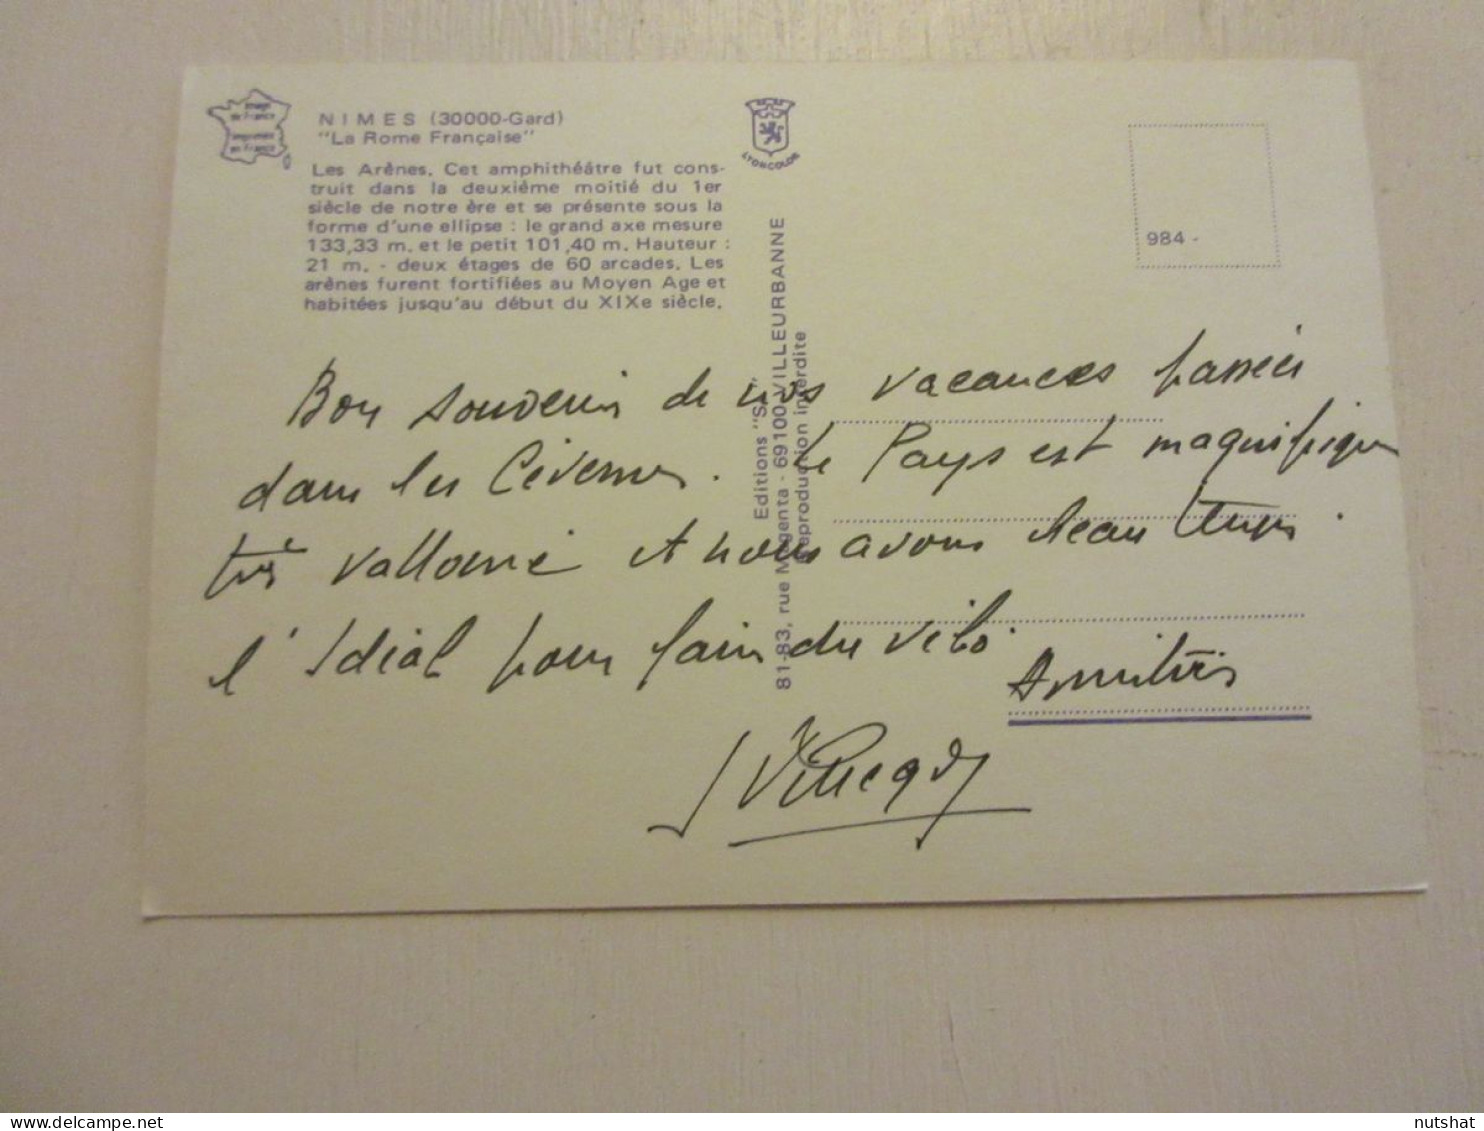 images
de France
imprimées
en France
NIMES (30000-Gard)
"La Rome Française"
Les Arênes. Cet amphithéâtre fut cons-
truit dans la deuxième moitié du 1er
siècle de notre ère et se présente sous la
forme d'une ellipse : le grand axe mesure
133,33 m. et le petit 101,40 m. Hauteur :
21 m. - deux étages de 60 arcades. Les
arènes furent fortifiées au Moyen Age et
habitées jusqu'au début du XIXe siècle.
LYONCOLOR
984 -
Editions "S.L"
81-83, rue Magenta - 69100 VILLEURBANNE
Reproduction interdite
Bon souvenir de nos vacances passées
dans les Cévennes. Le Pays est magnifique
très vallonné et nous avons beau temps.
l'Idéal pour faire du vélo.
Amitiés
nutshat